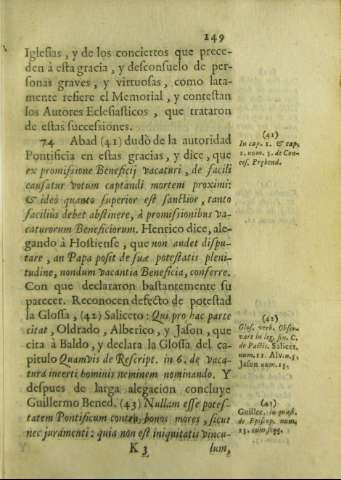 149
Iglesias, y de los conciertos que prece-
den à esta gracia, y desconsuelo de per-
sonas graves, y virtuosas, como lata-
mente refiere el Memorial, y contestan
los Autores Eclesiasticos, que trataron
de estas successiones.
74 Abad (41) dudò de la autoridad
Pontificia en estas gracias, y dice, que
ex promissione Beneficij vacaturi, de facili
causatur votum captandi mortem proximi:
& ideò quanto superior est sanctior, tanto
faciliùs debet abstinere, à promissionibus va-
caturorum Beneficiorum. Henrico dice, ale-
gando à Hostiense, que non audet dispu-
tare, an Papa posit de suæ potestatis pleni-
tudine, nondum vacantia Beneficia, conferre.
Con que declararon bastantemente su
parecer. Reconocen defecto de potestad
la Glossa, (42) Saliceto: Qui pro hac parte
citat, Oldrado, Alberico, y Jason, que
cita à Baldo, y declara la Glossa del ca-
pitulo Quamvis de Rescript. in 6. de vaca-
tura incerti hominis neminem nominando. Y
despues de larga alegacion concluye
Guillermo Bened. (43) Nullam esse potes-
tatem Pontificum contra bonos mores, sicut
nec juramenti: quia non est iniquitatis vincu-
K 3 lum,
(41)
In cap. 2. & cap.
2. num. 3. de Con-
ces. Prebend.
(42)
Glos. verb. Obser-
vare in leg. fin. C.
de Pactis. Salicet.
num. 11. Alv. n. 5.
Jason num. 13.
(43)
Guillec. in
de Episcop. num.
23. cum seqq.